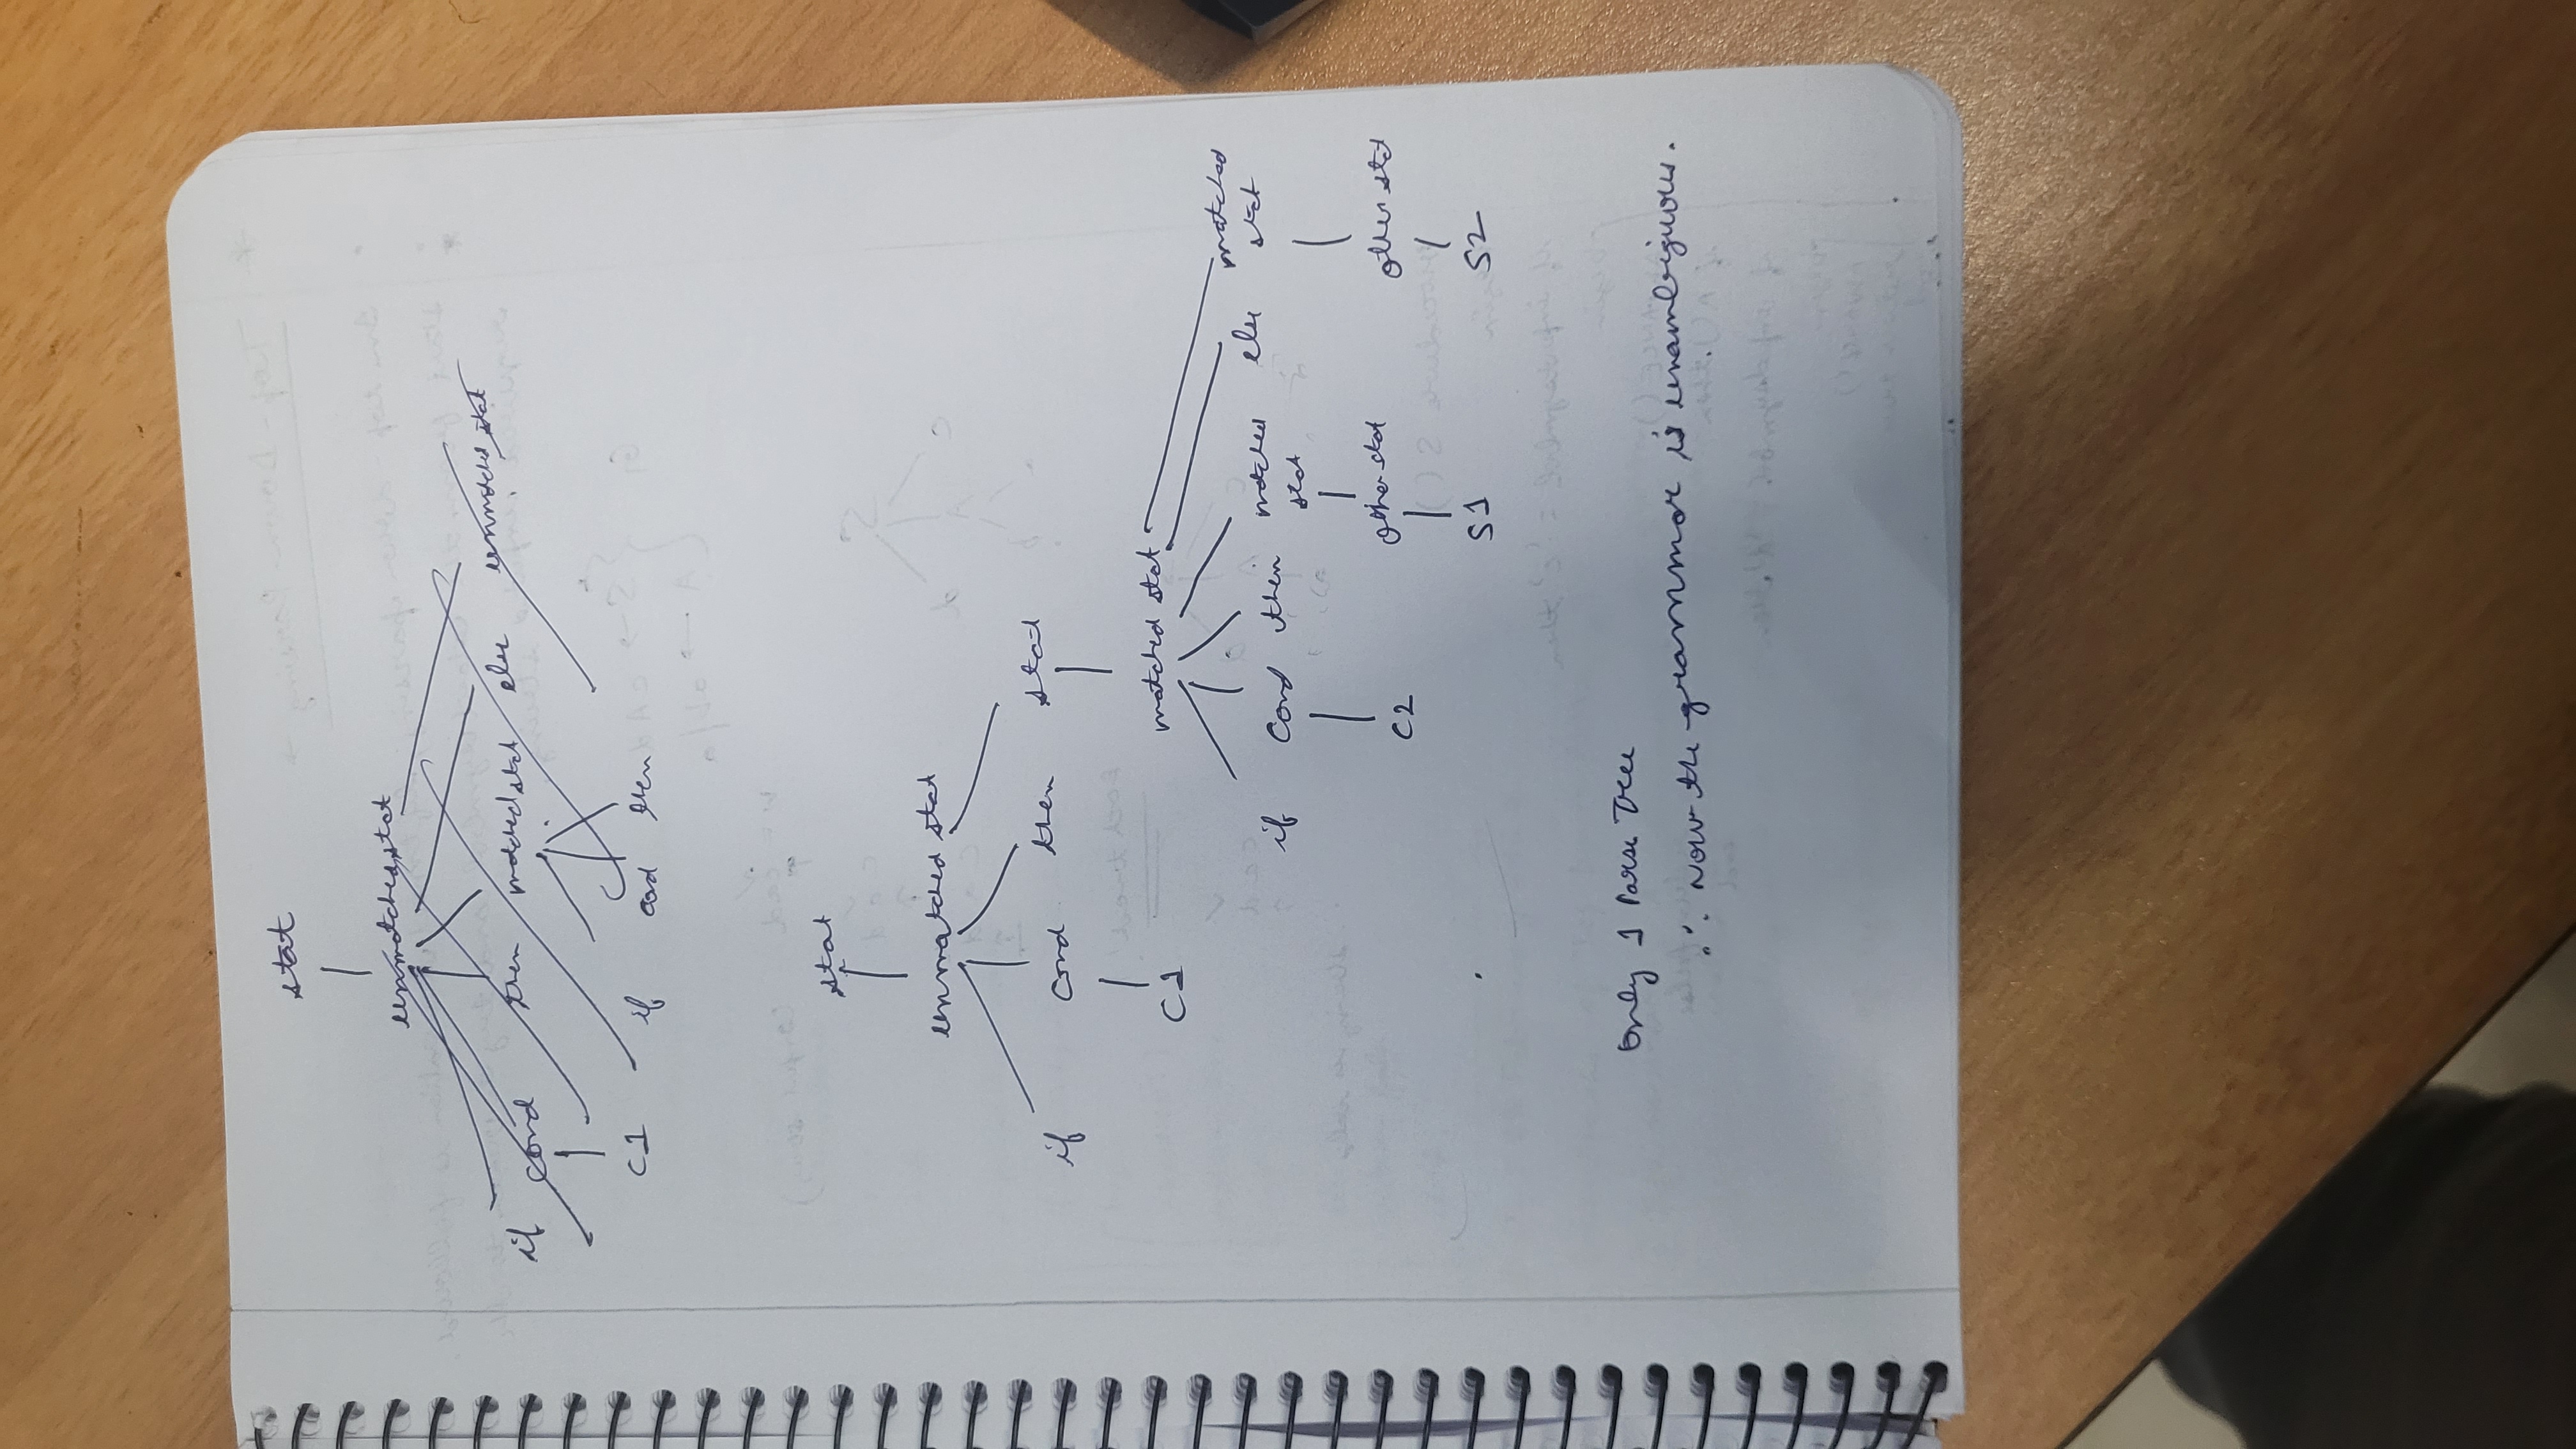 stat
unmatched stat
if cond then matched stat else unmatched stat
C1 if cond then
stat
unmatched stat
if cond then stat
C1
matched stat
if Cond then matched stat else matched stat
C2 other stat other stat
S1 S2
Only 1 Parse Tree
∴ Now the grammar is unambiguous.